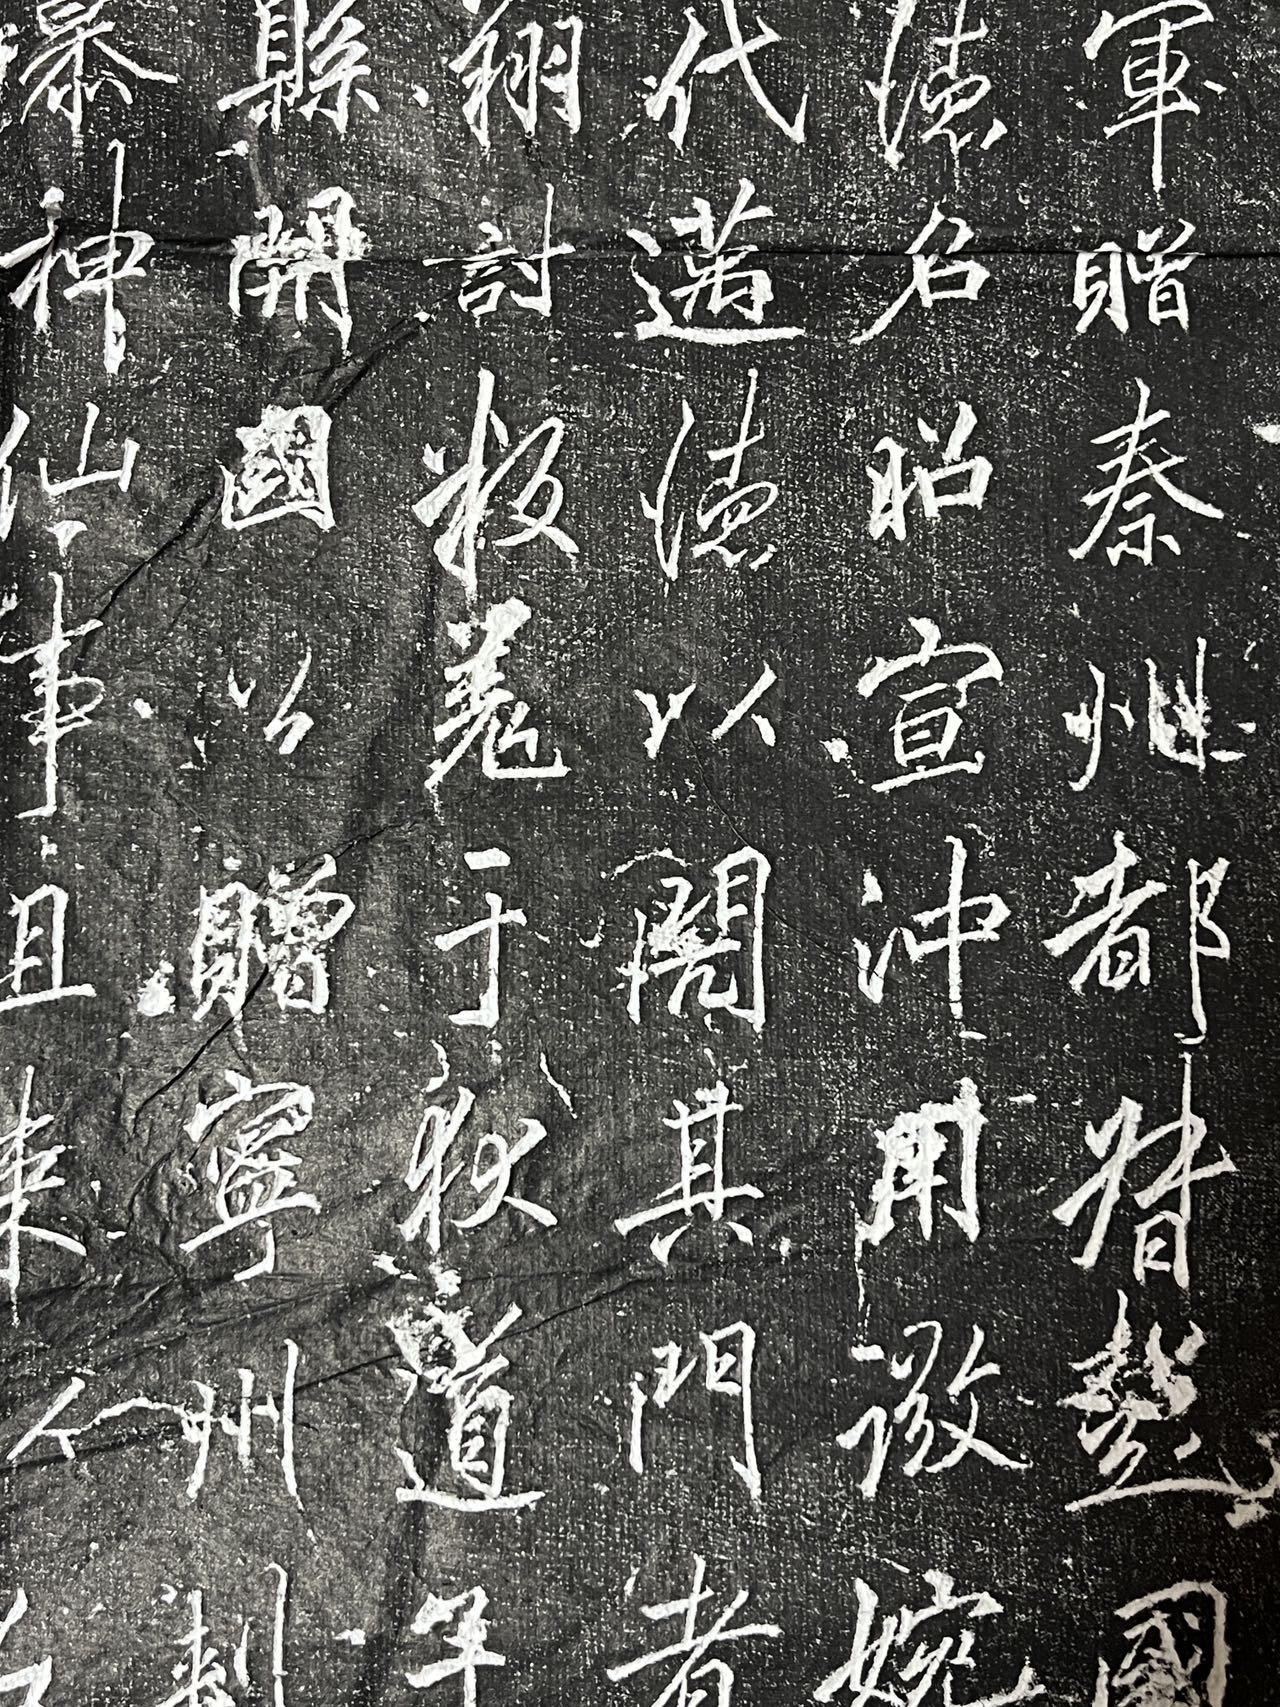 軍贈秦州都督懿國
德名昭宣沖用微婉
代邁德以闡其門者
翔討叛羌于狄道子
縣開國公贈寧州刺
慕神仙事且來